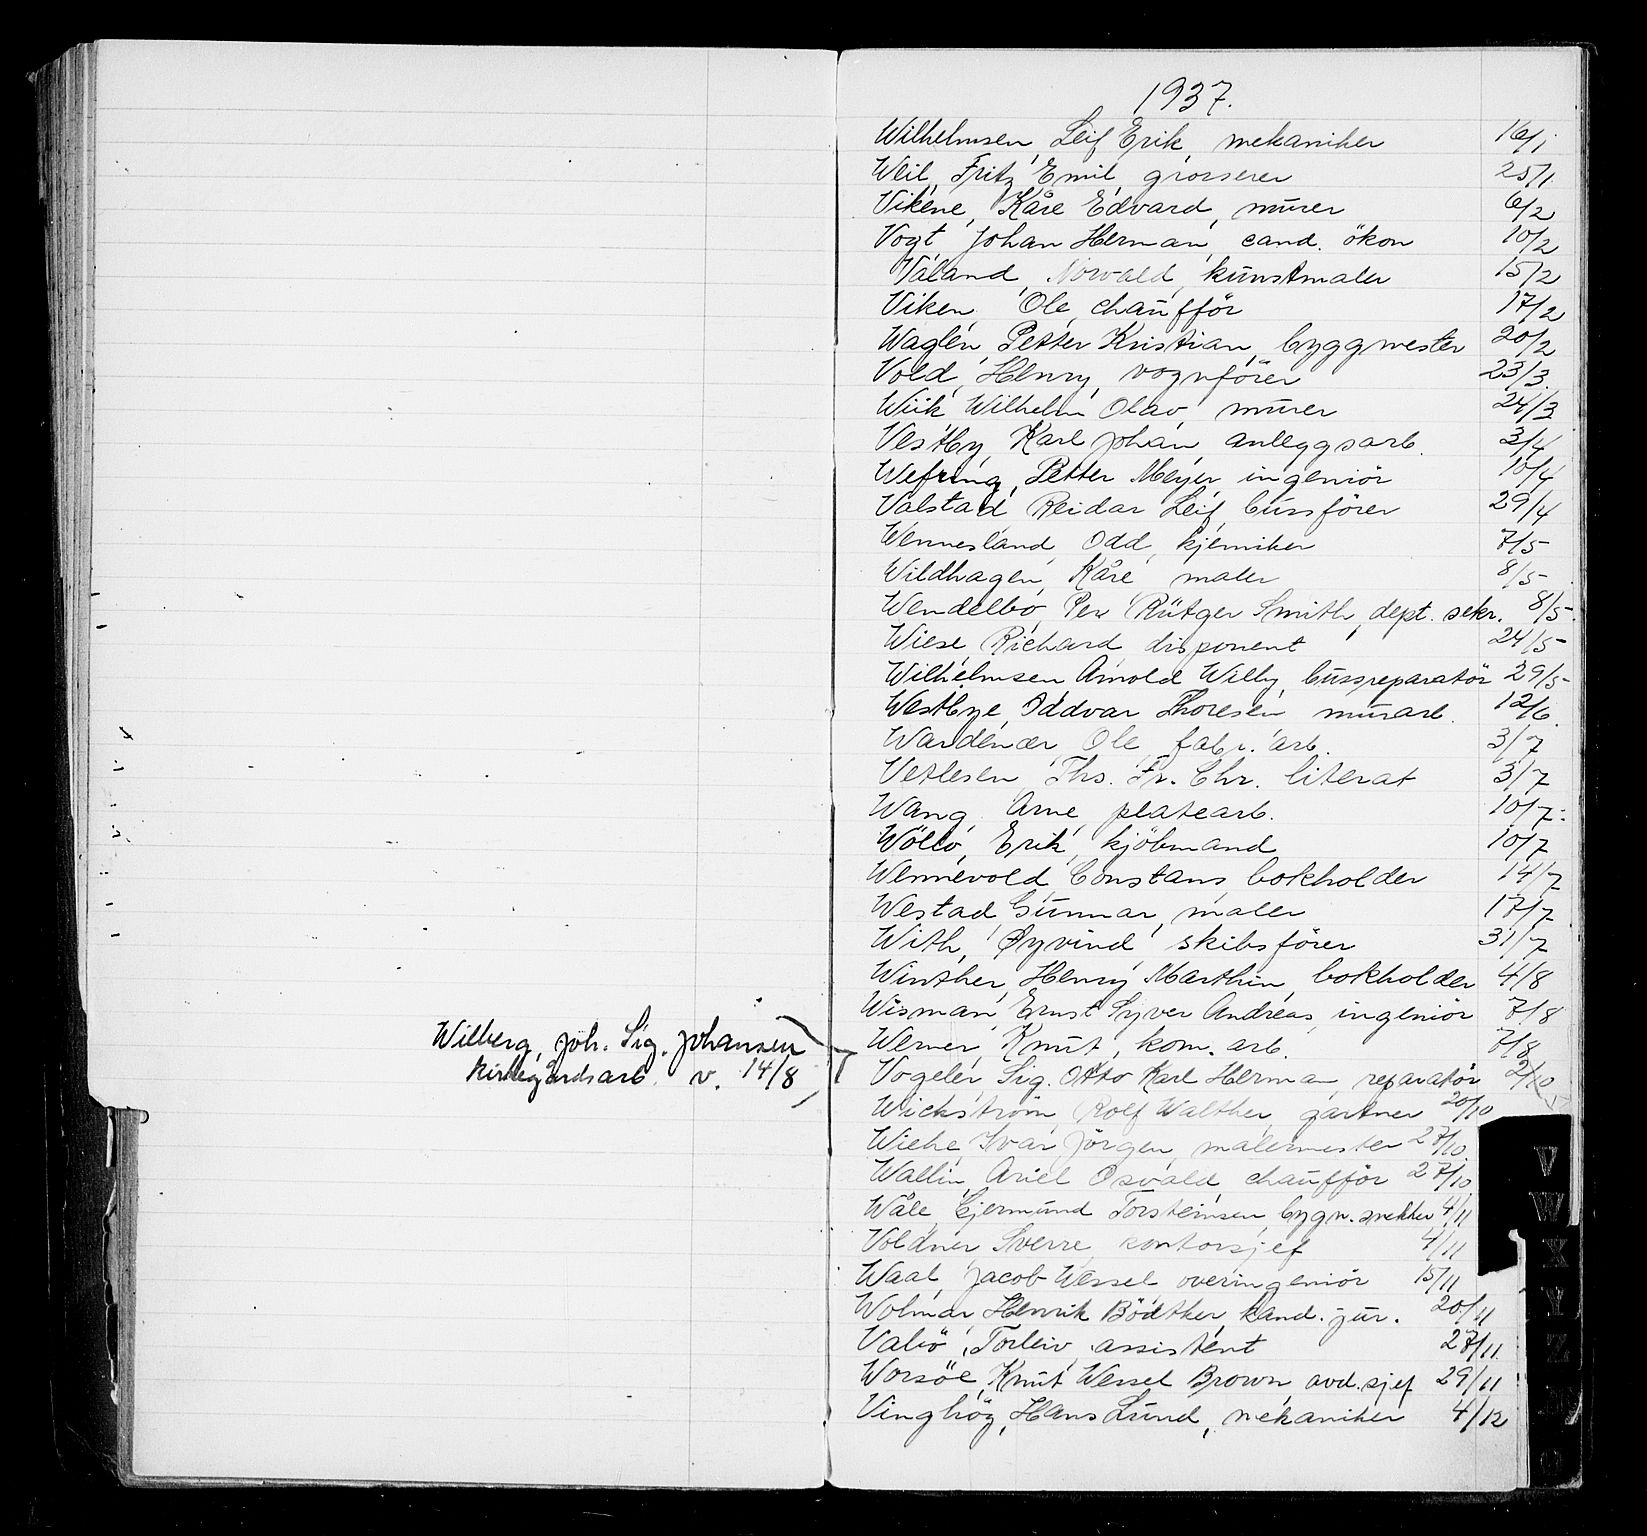 1937.
Wilhelmsen, Leif Erik, mekaniker 16/1
Weil, Fritz Emil, grosserer 25/1
Vikene, Kåre Edvard, murer 6/2
Vogt Johan Herman, cand. ökon 10/2
Våland, Norvald, kunstmaler 15/2
Viken Ole, chaufför 17/2
Waglen Petter Kristian, byggmester 20/2
Vold, Henry, vognförer 23/3.
Wiik Wilhelm Olav murer 24/3
Vestby, Karl Johan, anleggsarb. 3/4
Wefring, Petter Meyer, ingeniör 10/4
Valstad Reidar Leif, bussförer 29/4
Wennesland, Odd, kjemiker 7/5
Wildhagen, Kåre maler 8/5
Wendelbo, Per Rütger Smith, dept. sekr. 8/5.
Wiese, Richard, disponent 24/5
Wilhelmsen Arnold Willy, bussreparatör 29/5
Westbye, Oddvar Thoresen murarb. 12/6.
Wardenær, Ole, fabr. arb. 3/7
Vetlesen, Ths. Fr. Chr. literat 3/7
Wang, Arne, platearb. 10/7.
Wöllo, Erik, kjöbmand 10/7
Wennevold, Constans, bokholder 14/7
Westad Gunnar, maler 17/7
With, Øyvind skibsförer 31/7
Winther, Henry Marthin, bokholder 4/8
Wisman, Ernst Syver Andreas, ingeniör 7/8
Wilberg, Joh. Sig. Johansen
kirkegårdsarb. v. 14/8
Werner, Knut, kom. arb. 7/8
Vogeler Sig. Otto Karl Herman, reparatör 2/10
Wickström, Rolf Walther, gartner 20/10
Wiehe, Ivar Jörgen, malermester 27/10.
Wallin, Ariel Osvald, chaufför 27/10
Wåle, Gjermund Torsteinsen, bygn. snekker 4/11
Voldner Sverre, kontorsjef 4/11
Waal, Jacob Wessel, overingeniör 15/11
Wolmar, Henrik Bödtker, kand. jur. 20/11
Valiö, Torleiv, assistent 27/11.
Worsöe, Knut Wessel Brown, avd. sjef 29/11
Vinghög, Hans Lund, mekaniker 4/12
V
W
X
Y
Z
Ø